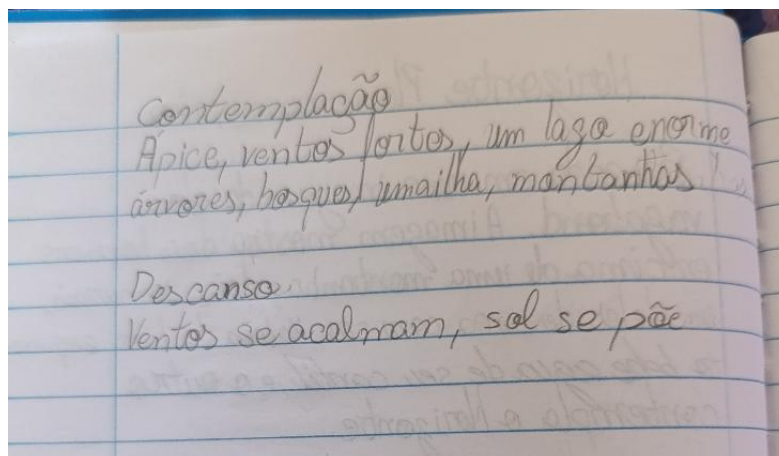 Contemplação
Ápice, ventos fortes, um lago enorme
árvores, bosques, uma ilha, montanhas
Descanso.
Ventos se acalmam, sol se põe